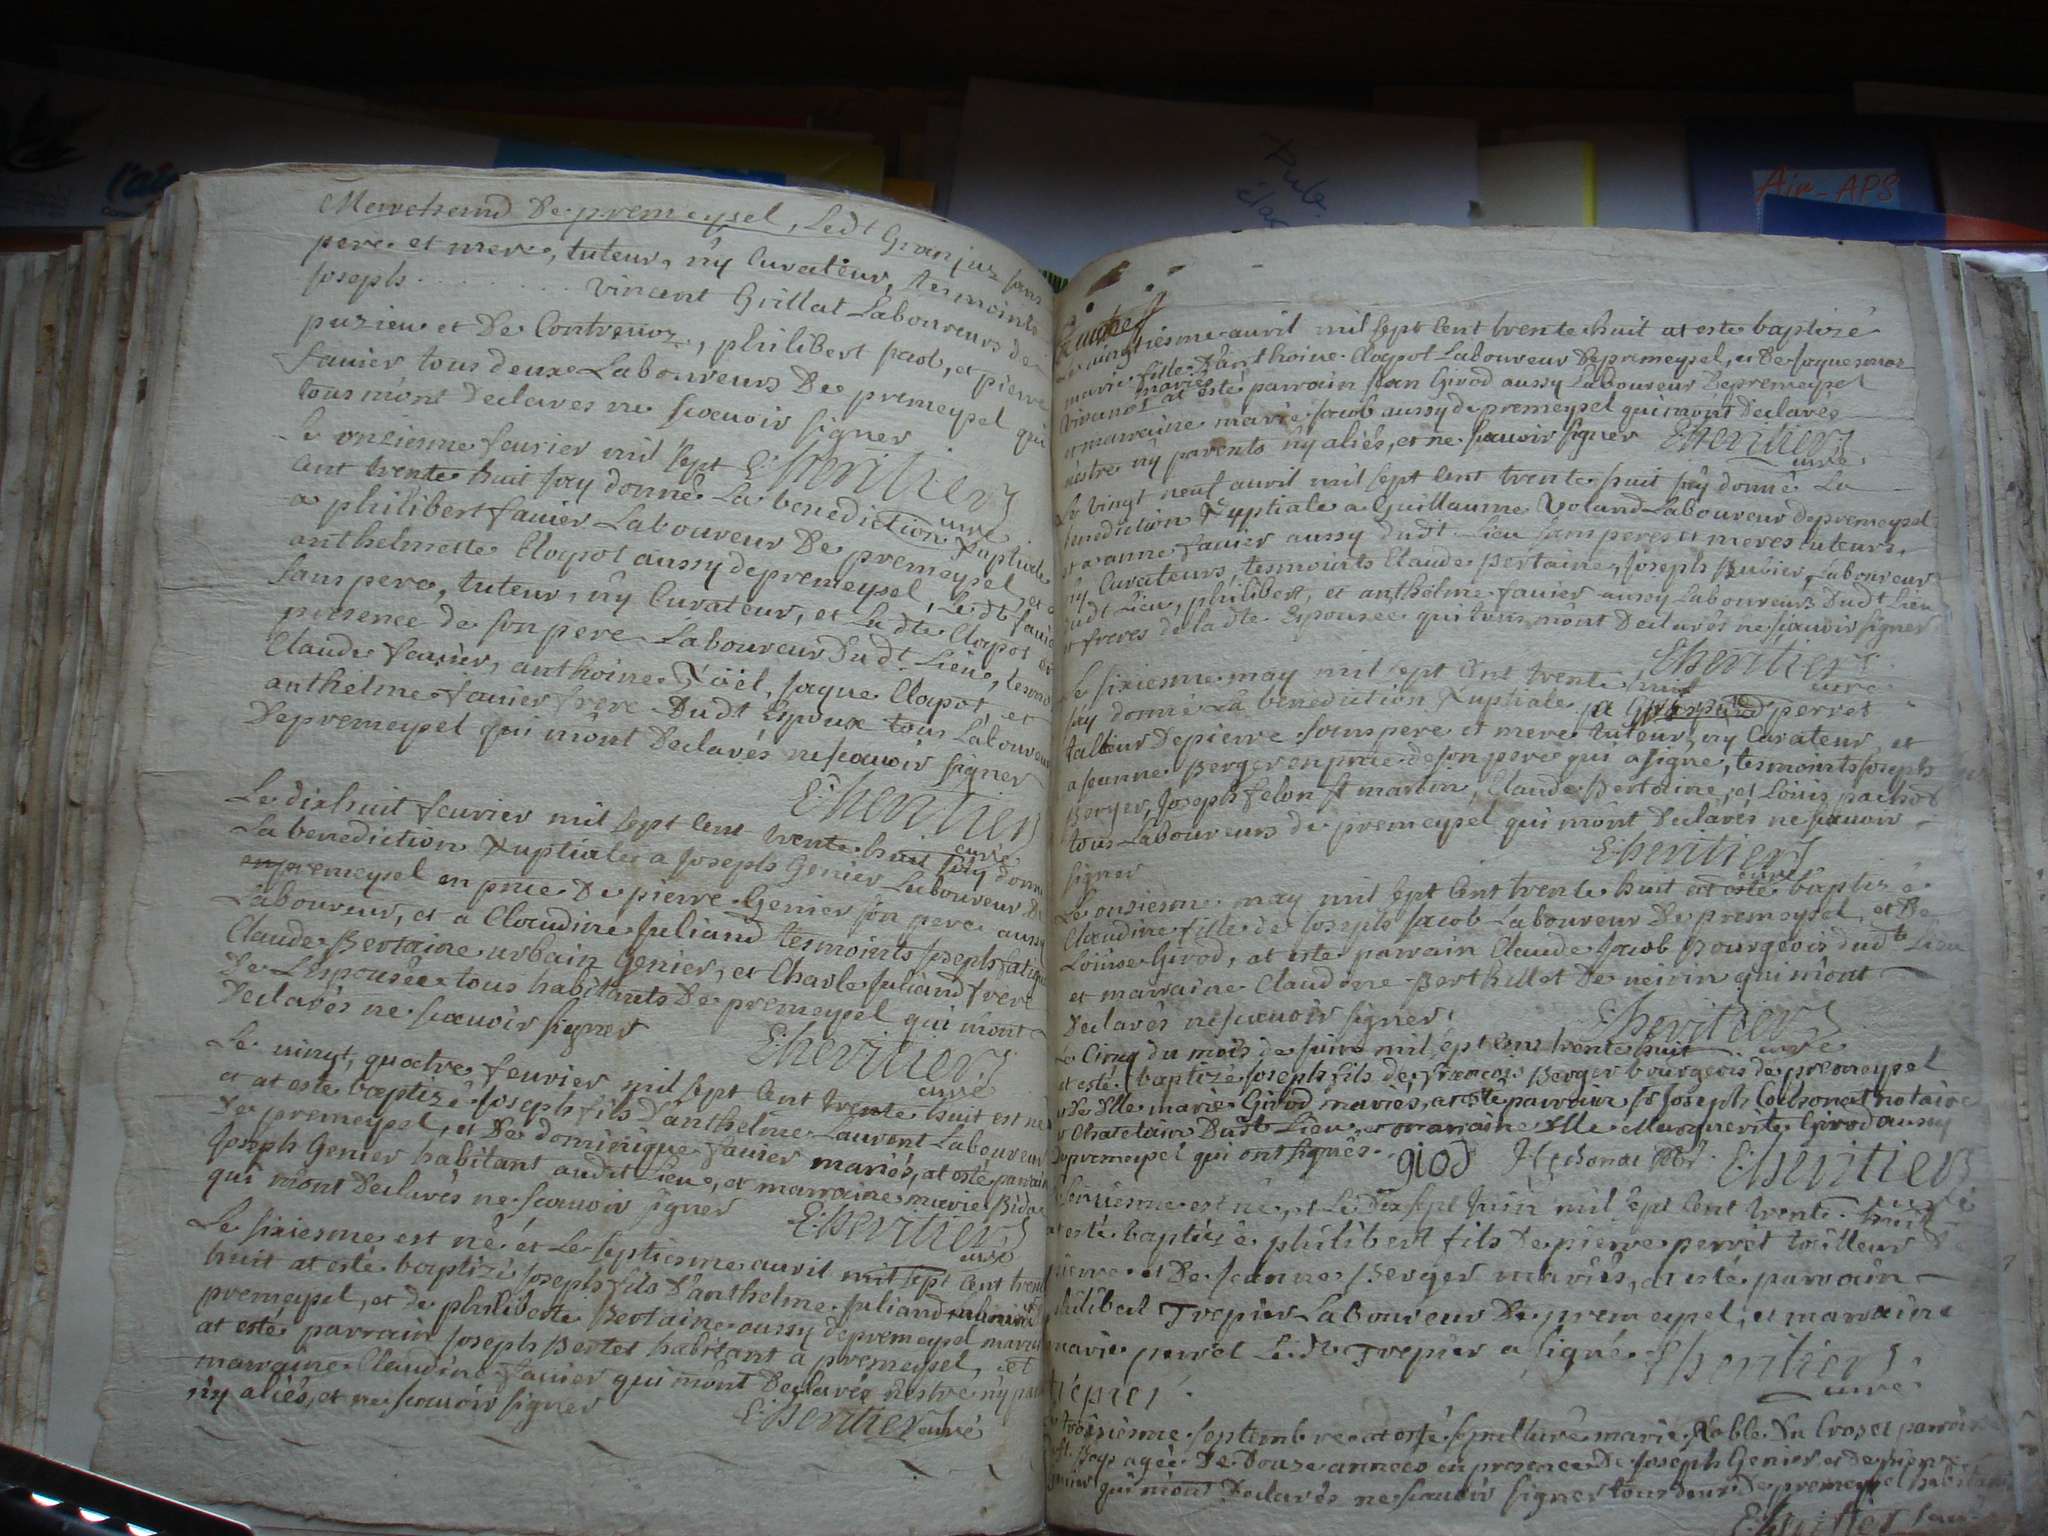 Marchand De premeysel, Ledt Granjux sans
pere et mere, tuteur, ny Curateur, tesmoints
Joseph . . . . . . . . . vincent Guillat Laboureurs de
puzieu et De Contrevoz, philibert jacob, et pierre
favier tous deux Laboureurs De premeysel qui
tous m'ont Declarés ne scavoir signer
Le onsiemme fevrier mil sept
E: Lheritier curé
Cent trente huit J'ay donné La benediction Nuptiale
a philibert favier Laboureur De premeysel, et a
anthelmette Clapot aussy de premeysel, Ledt favier
sans pere, tuteur, ny Curateur, et La dte Clapot en
presence de son pere Laboureur Dudt Lieu, tesmoints
Claude favier, anthoine Noël, Jaque Clapot, et
anthelme favier frere Dudt Epoux tous Laboureurs
De premeysel qui m'ont Declarés ne scavoir signer
E: Lheritier curé
Le dixhuit fevrier mil sept Cent trente huit J'ay donné
La benediction Nuptiale a Joseph Genier Laboureur De
premeysel en pnce De pierre Genier son pere aussy
Laboureur, et a Claudine Juliand tesmoints Joseph
Claude Bertaine urbain Genier, et Charle Juliand frere
De L'Espousée tous habitants De premeysel qui m'ont
Declarés ne scavoir signer
E: Lheritier curé
Le vingt quatre fevrier mil sept Cent trente huit est né
et at esté baptizé Joseph fils D'anthelme Laurent Laboureur
De premeysel, et De dominique favier mariés, at esté parrain
Joseph Genier habitant audit Lieu, et marraine marie
qui m'ont Declarés ne scavoir signer
E: Lheritier curé
Le sixiesme est né et Le septiesme avril mil sept Cent trente
huit at esté baptizé Joseph fils D'anthelme Juliand
premeysel, et de philiberte Bertaine aussy de premeysel mariés
at esté parrain Joseph Bertet habitant a premeysel, et
marraine Claudine favier qui m'ont Declarés n'estre ny parents
ny aliés, et ne scavoir signer
E: Lheritier curé
Le vingtiesme avril mil sept Cent trente huit at esté baptizé
marie fille D'anthoine Clapot Laboureur De premeysel, et De
mariés
at esté parrain Jean Girod aussy Laboureur De premeysel
et marraine marie Jacob aussy de premeysel qui m'ont Declarés
n'estre ny parents ny aliés, et ne scavoir signer E: Lheritier
curé
Le vingt neuf avril mil sept Cent trente huit J'ay donné La
benediction Nuptiale a Guillaume Voland Laboureur de premeysel
et a anne favier aussy dudit Lieu sans peres et meres tuteurs,
ny Curateurs, tesmoints Claude Bertaine, Joseph Laboureur
dudt Lieu, philibert, et anthelme favier aussy Laboureurs Dudt Lieu
et freres de ladte Epousée qui tous m'ont Declarés ne scavoir signer
E: Lheritier
curé
Le sixiesme may mil sept Cent trente huit
J'ay donné La benediction Nuptiale a perret
tallieur De pierre sans pere et mere tuteur, ny Curateur, et
a Jeanne Berger en pnce de son pere qui a signé, tesmoints Joseph
Berger, Joseph felon St martin, Claude Bertaine, et Louis pachod
tous Laboureurs de premeysel qui m'ont Declarés ne scavoir
signer
E: Lheritier
curé
Le onsiesme may mil sept Cent trente huit at esté baptizé
Claudine fille de Joseph Jacob Laboureur De premeysel, et De
Loüise Girod, at esté parrain Claude Jacob Bourgeois dudt Lieu
et marraine Claudine Berthillet De qui m'ont
Declarés ne scavoir signer.
E: Lheritier
curé
Le Cinq du mois de Juin mil sept Cent trente huit
at esté baptizé Joseph fils de françois Berger bourgeois de premeysel
et De Dlle marie Girod mariés, at esté parrain Sr Joseph notaire
et Chatelain Dudt Lieu, et marraine Dlle Marguerite Girod aussy
De premeysel qui ont signés. giod E: Lheritier
curé
est né, et Le dix sept Juin mil sept Cent trente huit
at esté baptizé philibert fils De pierre perret tailleur De
pierre et De Jeanne Berger mariés, at esté parrain
philibert Trepier Laboureur De premeysel, et marraine
marie perret Ledt Trepier a signé. E: Lheritier
trepier
curé
troisiesme septembre at esté sepulturé marie Noble Du Croset
agée De Douze années en presence De Joseph Genier et de pierre
qui m'ont Declarés ne scavoir signer tous deux De premeysel
E: Lheritier
Air-APS